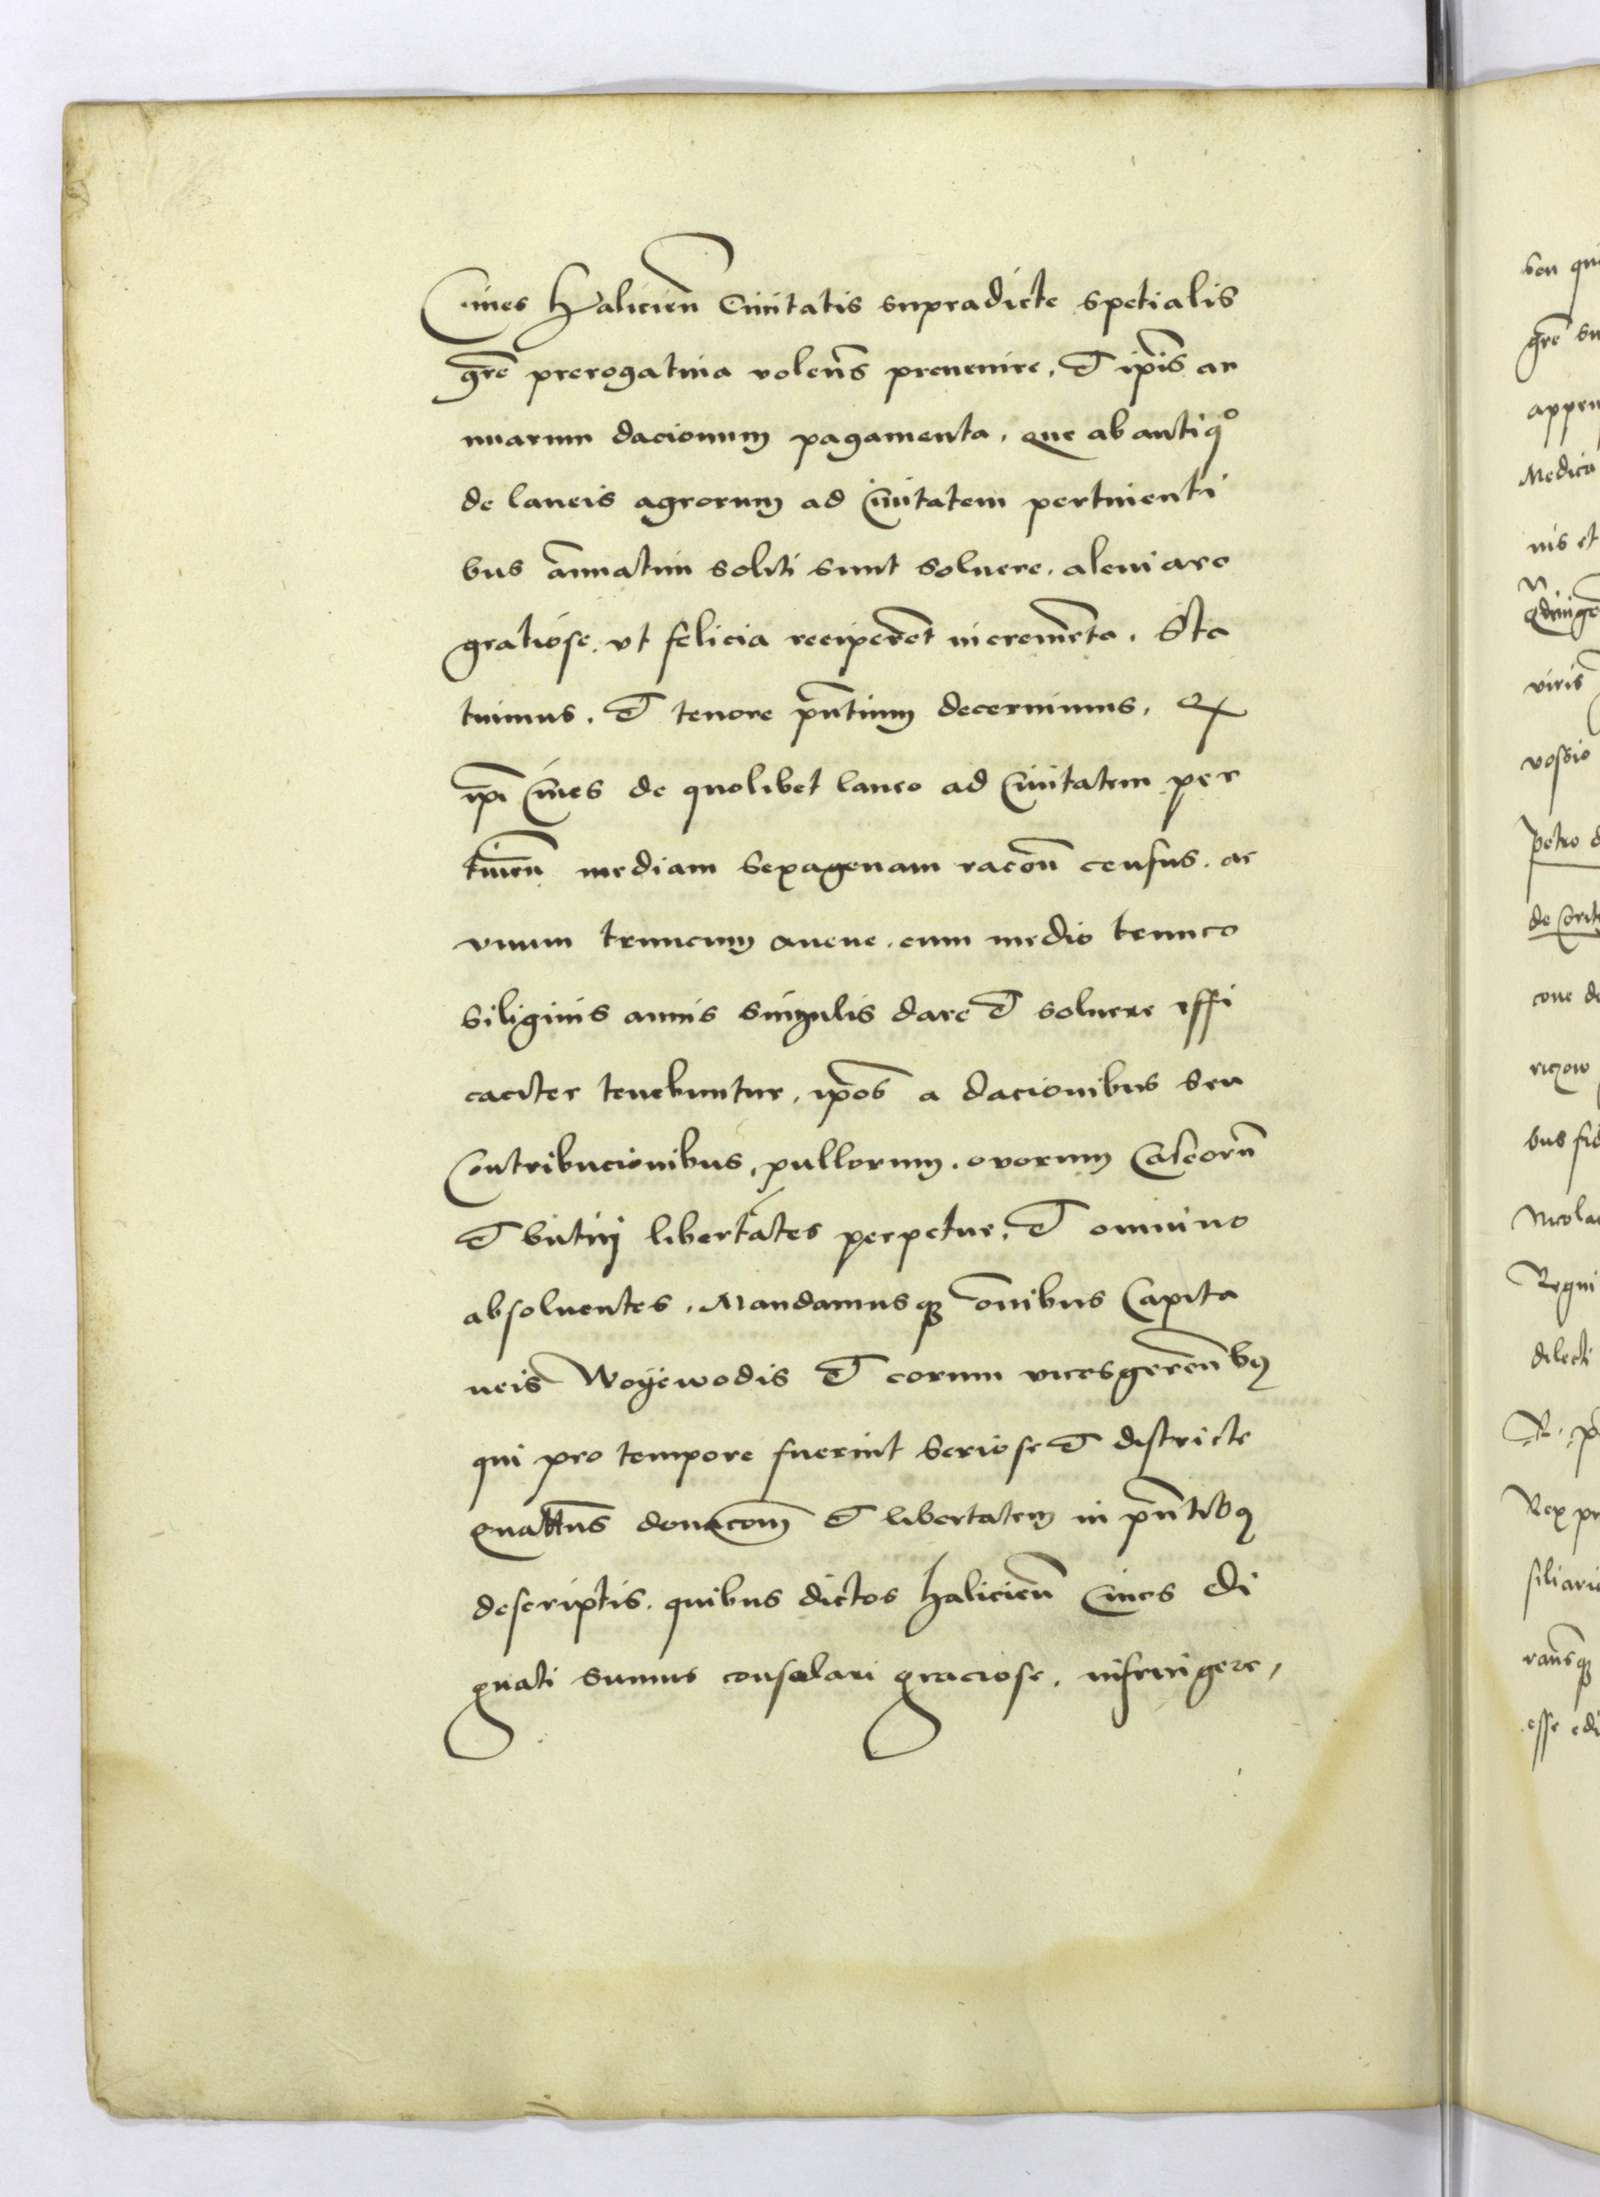 Ciues Halicien̄ Ciuitatis supradicte spetialis
gr̄e prerogatiua volen̄s preuenire, et ip̄is an
nuarum dacionum pagamenta, que ab antiqº
de laneis agrorum ad Ciuitatem pertinenti
bus an̄natim soliti sunt soluere, aleuiare
gratiose, vt felicia reciperēt increm̄ēta, Sta
tuimus, et tenore pn̄tium decernimus, Qꝫ
ip̄i Ciues de quolibet laneo ad Ciuitatem per
tinen̄ mediam sexagenam racōn̄ census, ac
vnum truncum auene, cum medio trunco
siliginis annis singulis dare et soluere effi
caciter tenebuntur, ip̄os a dacionibus seu
Contribucionibus, pullorum, ovorum Caseorū
et butiri libertātes perpetue, et omnino
absoluentes, Mandamusqꝫ om̄ibus Capita
neis Woÿewodis et eorum vicesgeren̄bꝰ
qui pro tempore fuerint seriose et districte
quattn̄s donacōm̄ et libertatem in pn̄tibꝰ
descriptis, quibus dictos halicien̄ Ciues di
gnati sumus consolari graciose, infringere,
seu qui
gr̄e su
Medica
nis et
viris
Petro d
cone de
bus fid
Nicolau
Regni
dilecti
Rex pr
siliari
esse edi